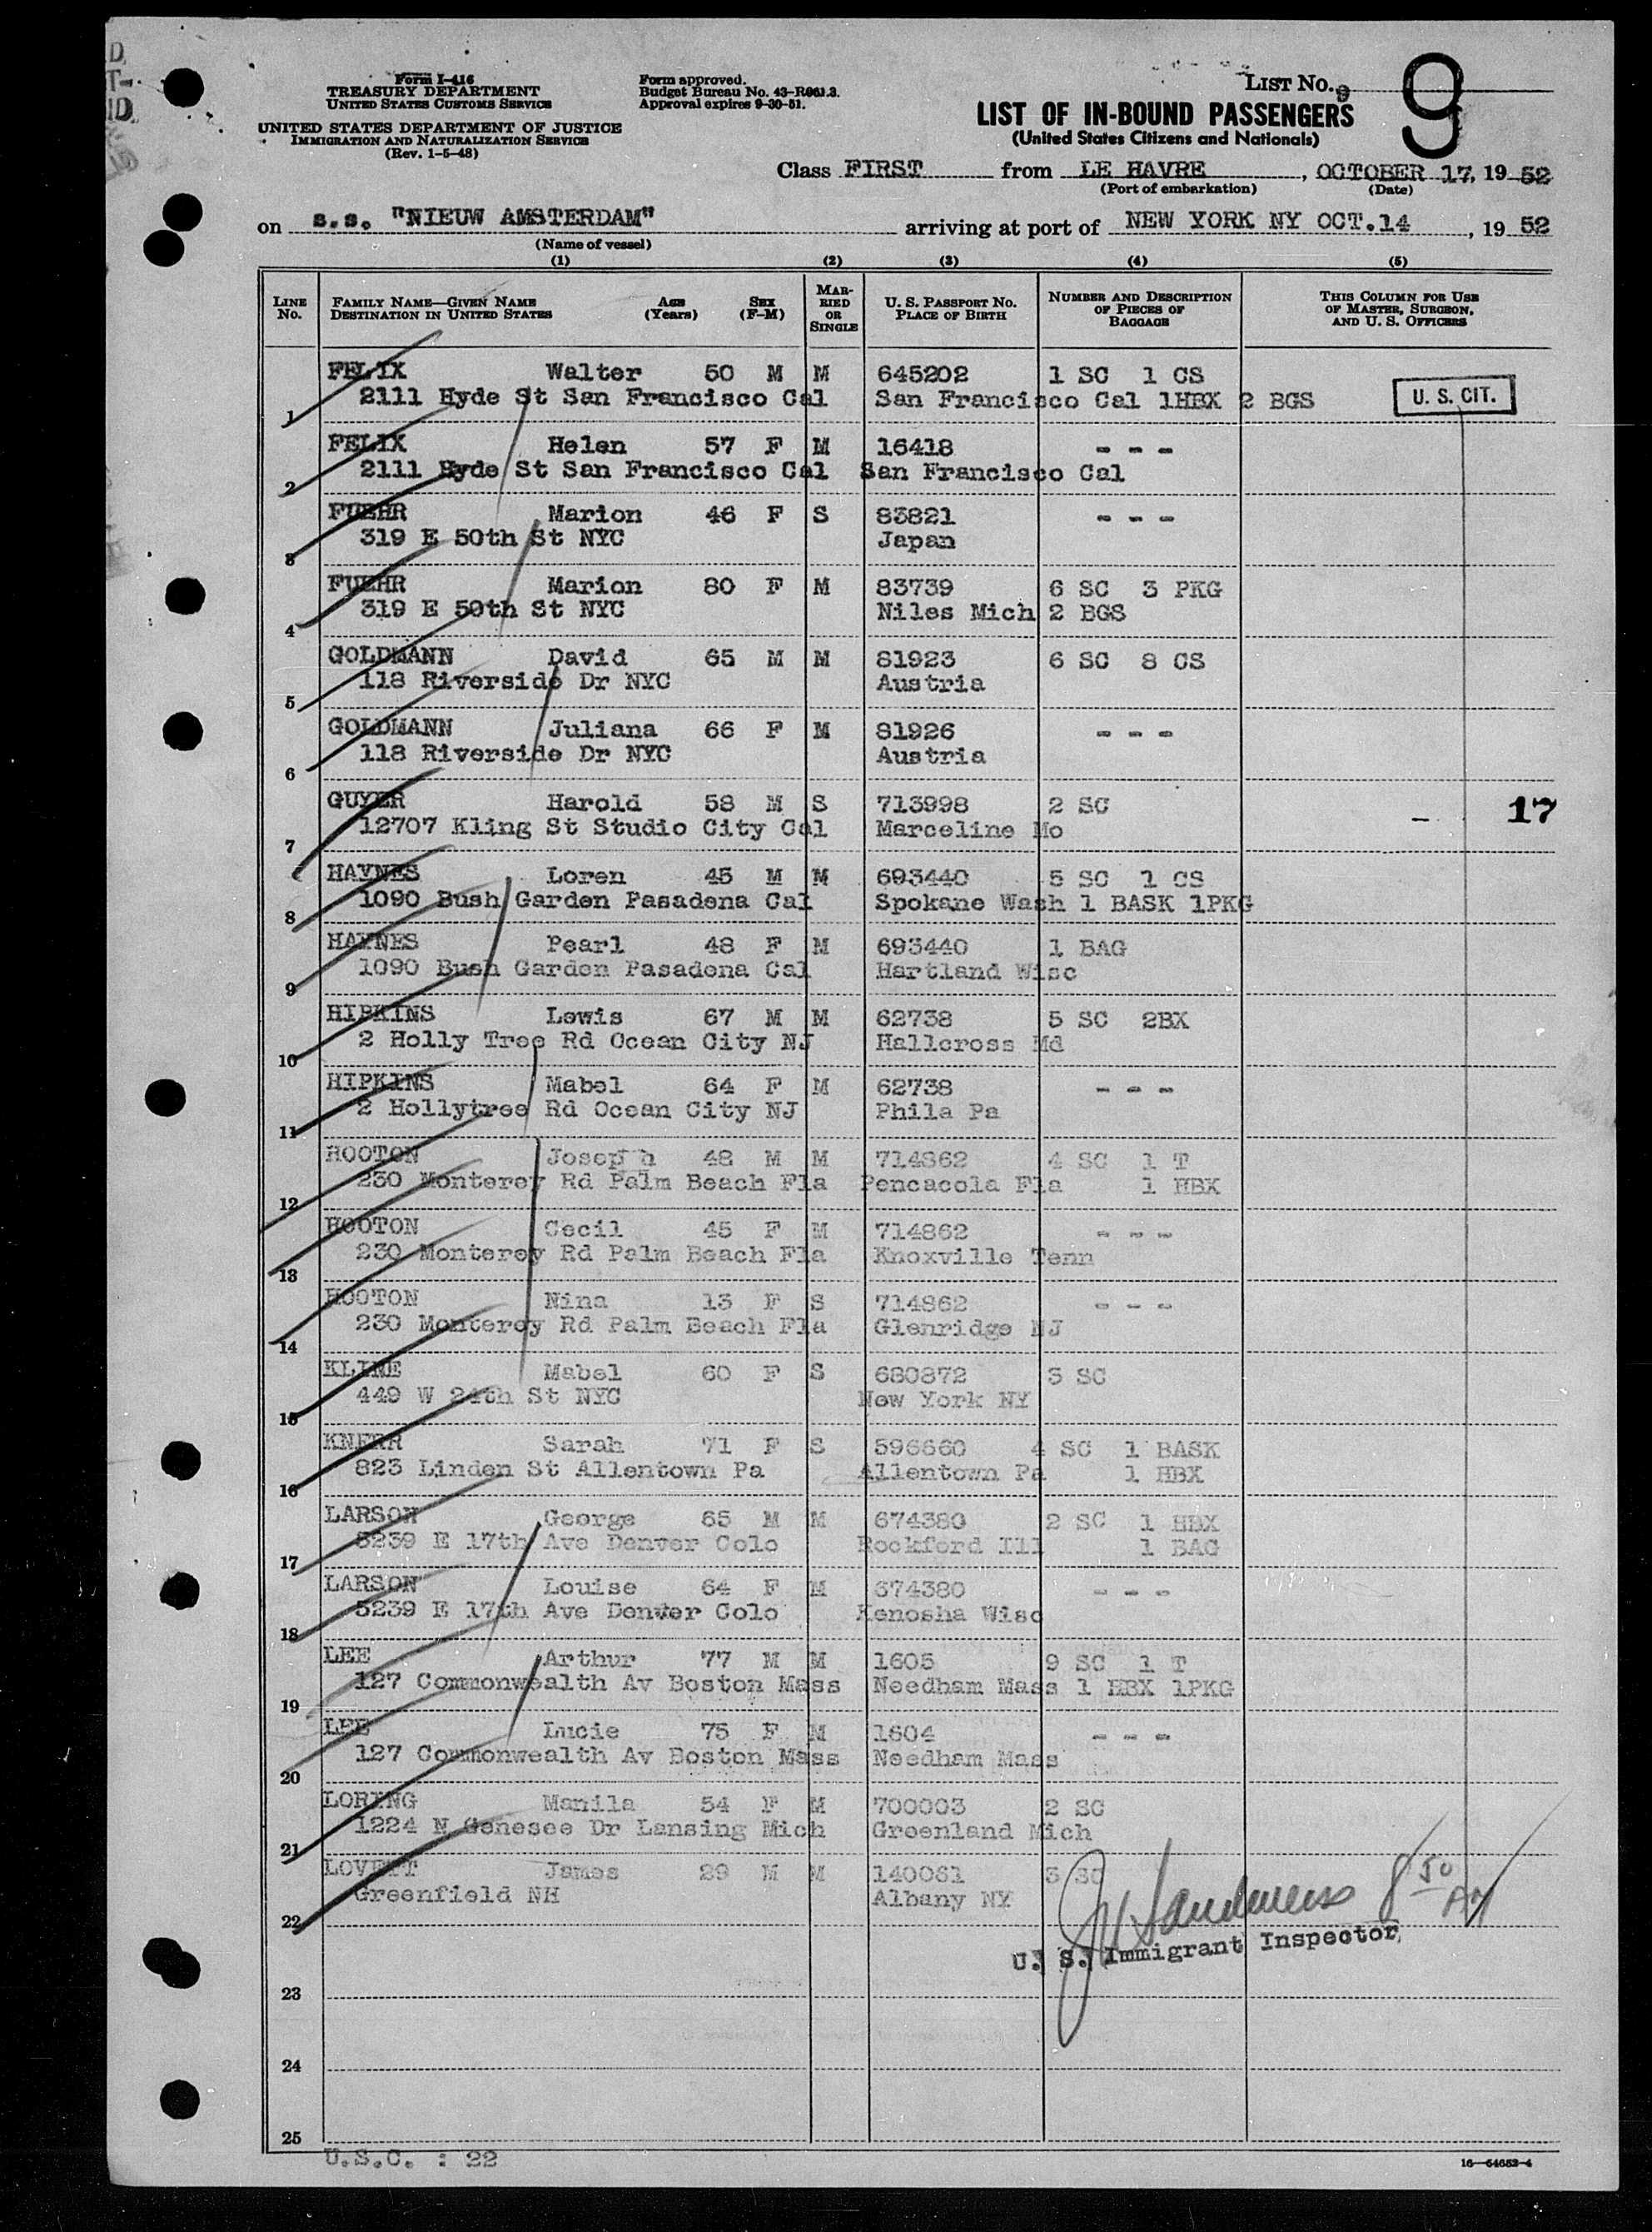 Form I-416
TREASURY DEPARTMENT
UNITED STATES CUSTOMS SERVICE
UNITED STATES DEPARTMENT OF JUSTICE
IMMIGRATION AND NATURALIZATION SERVICE
(Rev. 1-5-48)
Form approved.
Budget Bureau No. 43-R061.3.
Approval expires 9-30-51.
LIST No. 9
9
LIST OF IN-BOUND PASSENGERS
(United States Citizens and Nationals)
Class FIRST from LE HAVRE, OCTOBER 17, 19 52
(Port of embarkation) (Date)
on s.s. "NIEUW AMSTERDAM" arriving at port of NEW YORK NY OCT.14, 19 52
(Name of vessel)
(1) (2) (3) (4) (5)
LINE No. FAMILY NAME—GIVEN NAME DESTINATION IN UNITED STATES AGE (Years) SEX (F-M) MARRIED OR SINGLE U. S. PASSPORT NO. PLACE OF BIRTH NUMBER AND DESCRIPTION OF PIECES OF BAGGAGE THIS COLUMN FOR USE OF MASTER, SURGEON, AND U. S. OFFICERS
FELIX Walter 50 M M 645202 1 SC 1 CS
1 2111 Hyde St San Francisco Cal San Francisco Cal 1HBX 2 BGS U. S. CIT.
FELIX Helen 57 F M 16418 - - -
2 2111 Hyde St San Francisco Cal San Francisco Cal
FUEHR Marion 46 F S 83821 - - -
3 319 E 50th St NYC Japan
FUEHR Marion 80 F M 83739 6 SC 3 PKG
4 319 E 50th St NYC Niles Mich 2 BGS
GOLDMANN David 65 M M 81923 6 SC 8 CS
5 118 Riverside Dr NYC Austria
GOLDMANN Juliana 66 F M 81926 - - -
6 118 Riverside Dr NYC Austria
GUYER Harold 58 M S 713998 2 SC - 17
7 12707 Kling St Studio City Cal Marceline Mo
HAYNES Loren 45 M M 693440 5 SC 1 CS
8 1090 Bush Garden Pasadena Cal Spokane Wash 1 BASK 1PKG
HAYNES Pearl 48 F M 693440 1 BAG
9 1090 Bush Garden Pasadena Cal Hartland Wisc
HIPKINS Lewis 67 M M 62738 5 SC 2BX
10 2 Holly Tree Rd Ocean City NJ Hallcross Md
HIPKINS Mabel 64 F M 62738 - - -
11 2 Hollytree Rd Ocean City NJ Phila Pa
HOOTON Joseph 48 M M 714862 4 SC 1 T
12 230 Monterey Rd Palm Beach Fla Pencacola Fla 1 HBX
HOOTON Cecil 45 F M 714862 - - -
13 230 Monterey Rd Palm Beach Fla Knoxville Tenn
HOOTON Nina 13 F S 714862 - - -
14 230 Monterey Rd Palm Beach Fla Glenridge NJ
KLINE Mabel 60 F S 680872 3 SC
15 449 W 24th St NYC New York NY
KNERR Sarah 71 F S 596660 4 SC 1 BASK
16 823 Linden St Allentown Pa Allentown Pa 1 HBX
LARSON George 65 M M 674380 2 SC 1 HBX
17 5239 E 17th Ave Denver Colo Rockford Ill 1 BAG
LARSON Louise 64 F M 674380 - - -
18 5239 E 17th Ave Denver Colo Kenosha Wisc
LEE Arthur 77 M M 1605 9 SC 1 T
19 127 Commonwealth Av Boston Mass Needham Mass 1 HBX 1PKG
LEE Lucie 75 F M 1604 - - -
20 127 Commonwealth Av Boston Mass Needham Mass
LORING Manila 54 F M 700003 2 SC
21 1224 N Genesee Dr Lansing Mich Greenland Mich
LOVETT James 29 M M 140061 3 SC
22 Greenfield NH Albany NY
8 50 AM
U. S. Immigrant Inspector
23
24
25
U.S.C. : 22
16—54652-4